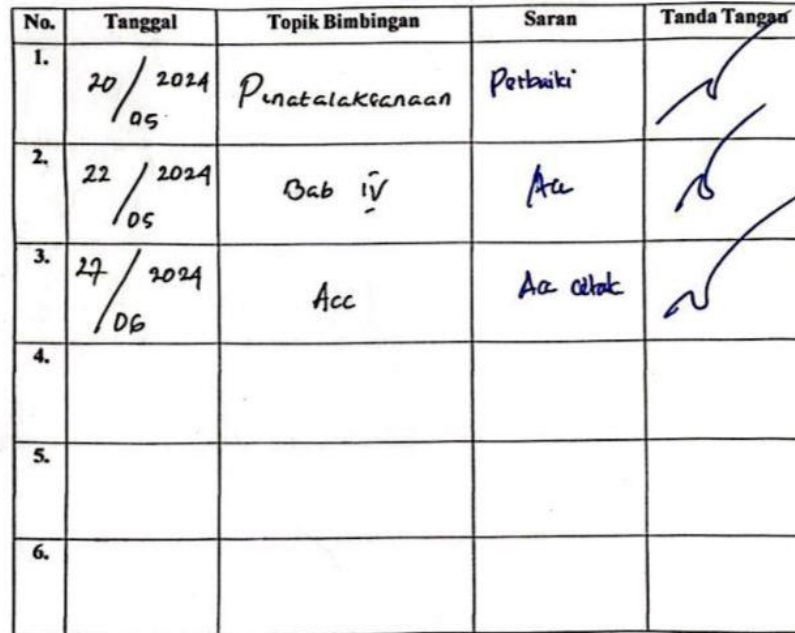 No. Tanggal Topik Bimbingan Saran Tanda Tangan
1. 20/05 2024 Penatalaksanaan Perbaiki
2. 22/05 2024 Bab IV Acc
3. 27/06 2024 Acc Acc cetak
4.
5.
6.